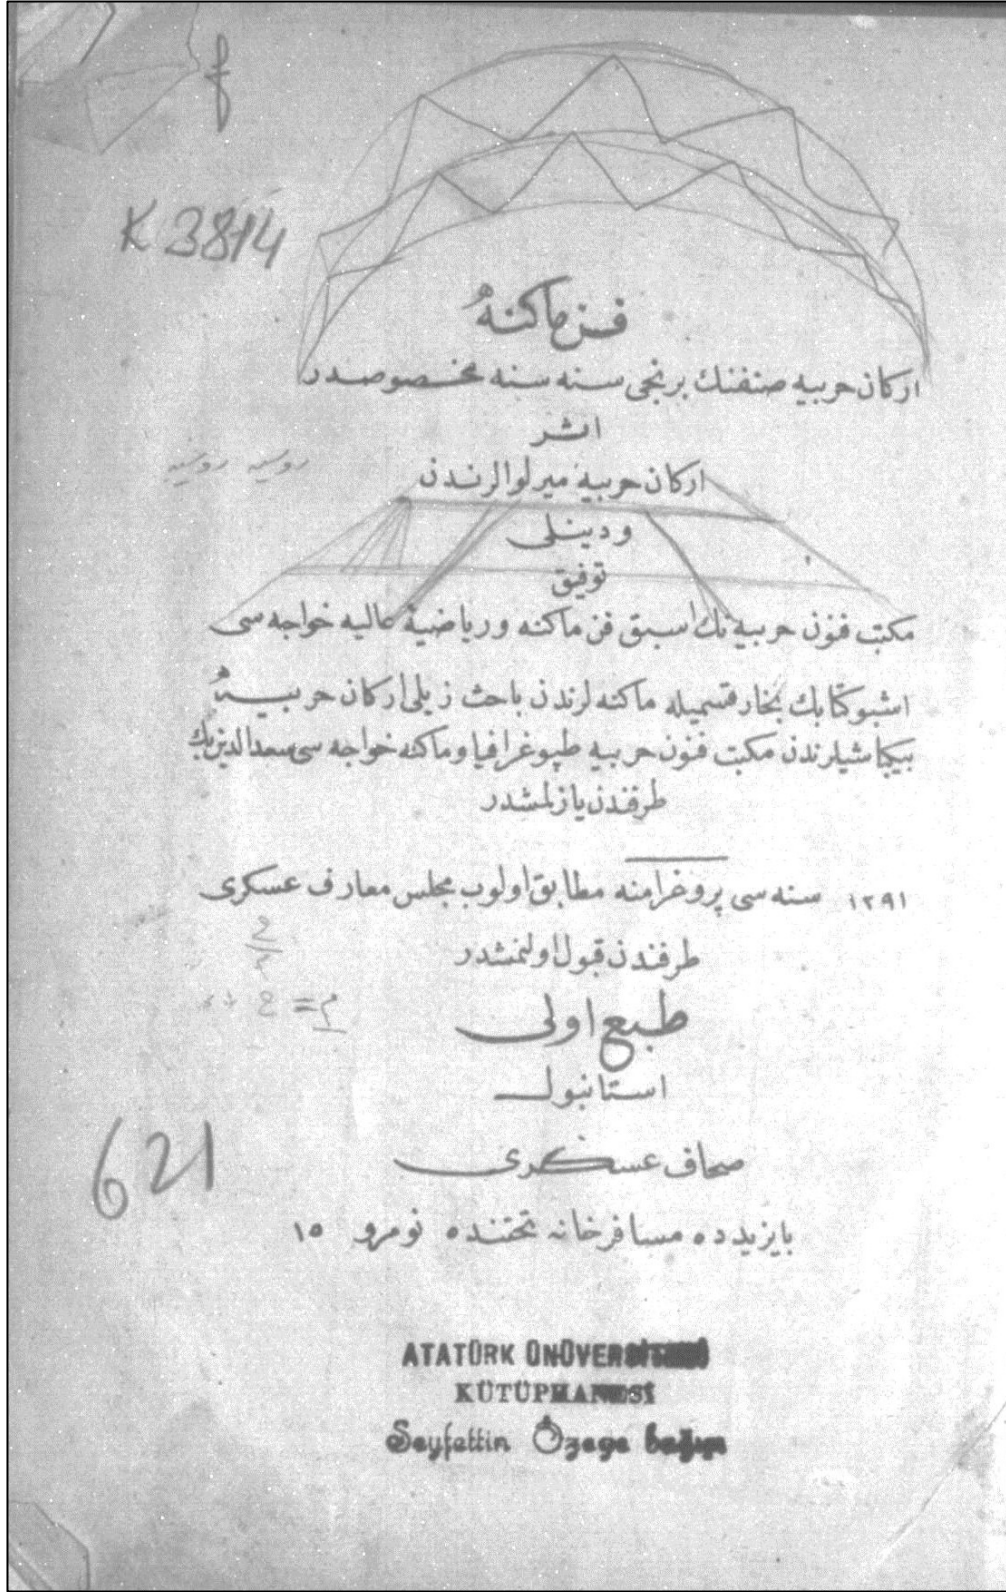 K 3814
فن ماكنه‌ٔ
اركان حربيه صنفنك برنجى سنه سنه مخصوصدر
اثر
اركان حربيه ميرلوالرندن
ودينلى
توفيق
مكتب فنون حربيه نك اسبق فن ماكنه ورياضيهٔ عاليه خواجه سى
اشبو كتابك بخار قسميله ماكنه لرندن باحث ذيلى اركان حربيهٔ
بيكباشيلرندن مكتب فنون حربيه طپوغرافيا وماكنه خواجه سى سعدالدين بك
طرفندن يازلمشدر
١٢٩١ سنه سى پروغرامنه مطابق اولوب مجلس معارف عسكرى
طرفندن قبول اولنمشدر
طبع اولى
استانبول
621
صحاف عسكرى
بايزيدده مسافرخانه تحتنده نومرو ١٥
ATATÜRK ÜNÜVERSİTESİ
KÜTÜPHANESİ
Seyfettin Özege bağışı